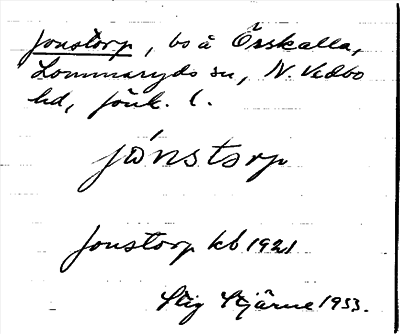 Jonstorp, bs å Örskalla,
Lommaryds sn, N. Vedbo
hd, Jönk. l.
jónstorp
Jonstorp kb 1921
Stig Stjärne 1933.